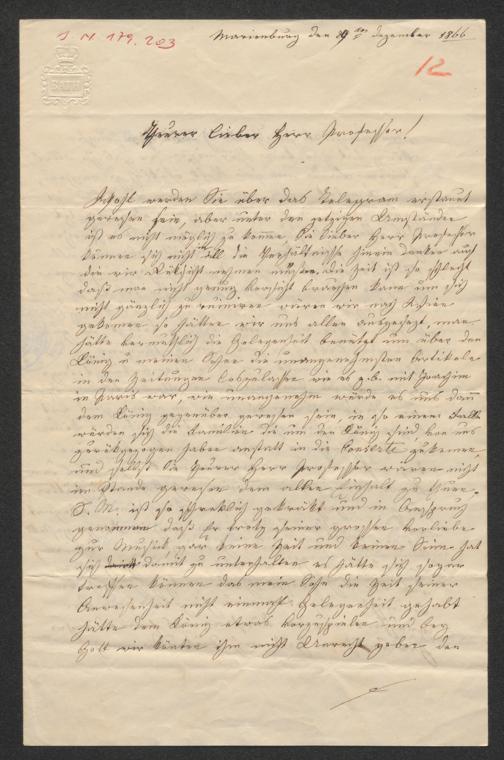 J. N 179.203
Marienburg den 19ten Dezember 1866
12
BATH
Theurer lieber Herr Professor!
Wohl werden Sie über das Telegram erstaunt
gewesen sein, aber unter den jetzigen Umständen
ist es nicht möglich zu kommen, Sie lieber Herr Professor
können sich nicht in all die Verhältnisse hinein denken auf
die wir Rüksicht nehmen müssen. Die Zeit ist so schlecht
daß man nicht genug Vorsicht brauchen kann um sich
nicht gänzlich zu ruiniren wären wir nach Wien
gekomen so hätten wir uns allen ausgesezt, man
hätte vermuthlich die Gelegenheit benützt um über den
König u meinen Sohn die unangenehmsten Artikeln
in den Zeitungen loszulassen wie es z.b. mit Joachim
in Paris war, wie unangenehm würde es uns dann
dem König gegenüber gewesen sein, in so einem Falle
würden sich die Familien die um den König sind von uns
zurükgezogen haben anstatt in die Conzerte zu kommen,
und selbst Sie theurer Herr Professor wären nicht
im Stande gewesen dem allen einhalt zu thuen.
S. M. ist so schreklich gekränkt und in Anspruch
genommen daß Er trotz seiner grossen Vorliebe
zur Musik gar keine Zeit und keinen Sinn hat
sich damit zu unterhalten es hätte sich sogar
treffen können das mein Sohn die Zeit seiner
Anwesenheit nicht einmahl Gelegenheit gehabt
hätte dem König etwas vorzuspielen und bey
Gott wir könnten ihm nicht Unrecht geben den